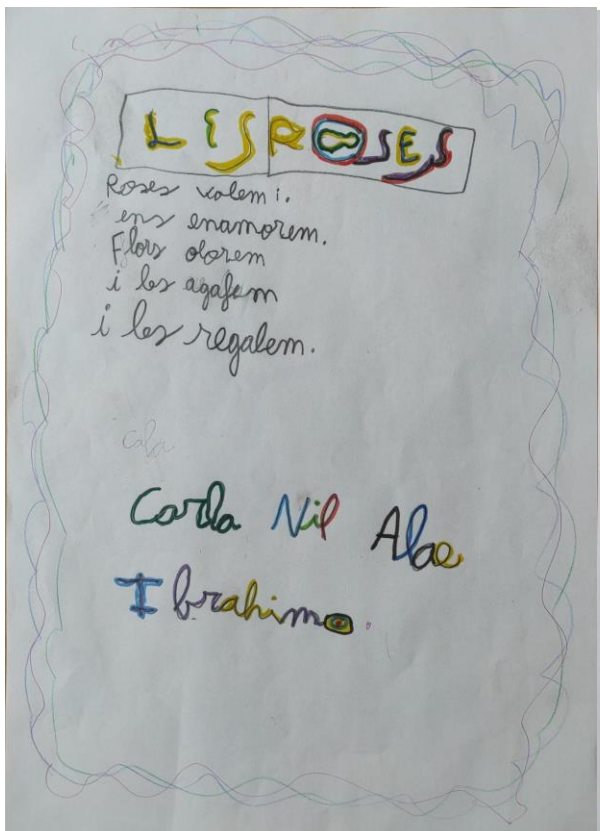 LES ROSES
Roses volem i.
ens enamorem.
Flors olorem
i les agafem
i les regalem.
Carla Nil Alae
Ibrahimo.